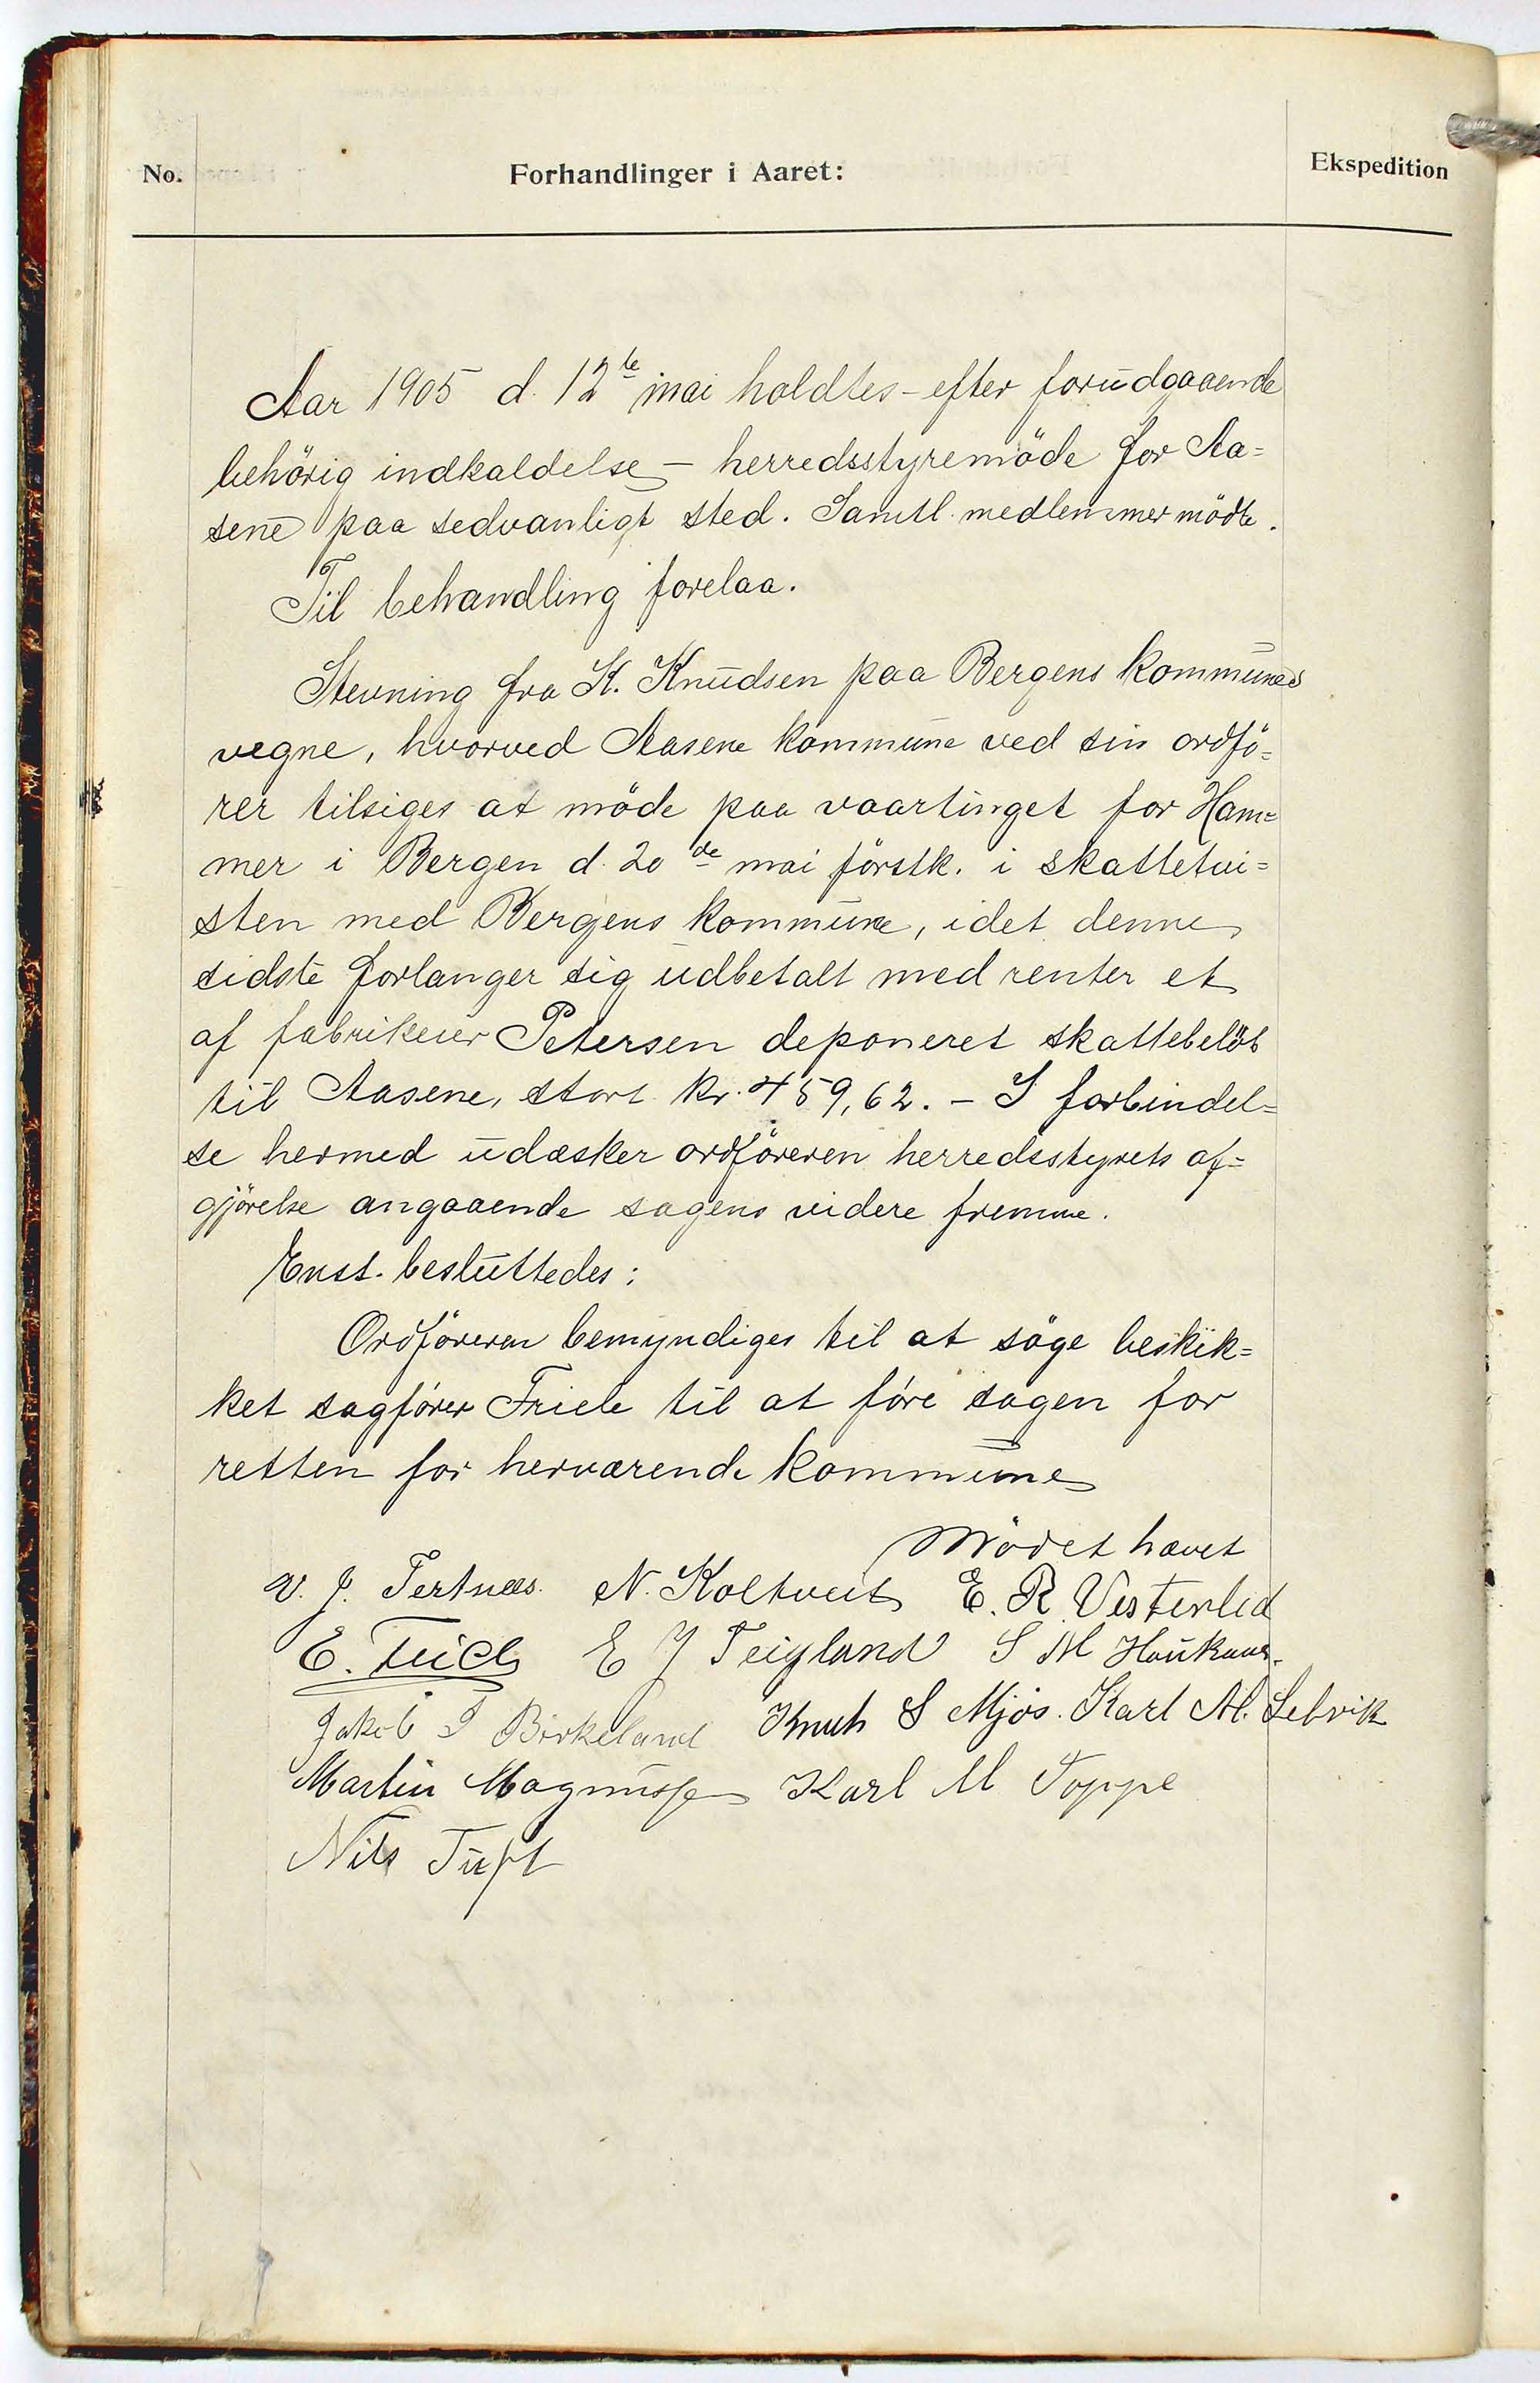 No.
Forhandlinger i Aaret:
Ekspedition
Aar 1905 d. 12te mai holdtes - efter forudgaaende
behörig indkaldelse - herredsstyremöde for Aa=
sene paa sedvanligt sted. Samtl. medlemmer mödte.
Til behandling forelaa.
Stevning fra K. Knudsen paa Bergens kommunes
vegne, hvorved Aasene kommune ved sin ordfö=
rer tilsiges at möde paa vaartinget for Ham=
mer i Bergen d. 20de mai förstk. i skattetvi=
sten med Bergens kommune, idet denne
sidste forlanger sig udbetalt med renter et
af fabrikeier Petersen deponeret skattebelöb
til Aasene, stort kr. 459,62. - I forbindel=
se hermed udæsker ordföreren herredsstyrets af=
gjörelse angaaende sagens videre fremme.
Enst. besluttedes:
Ordföreren bemyndiges til at söge beskik=
ket sagförer Friele til at före sagen for
retten for herværende kommune
Mödet hævet
V. J. Tertnæs. N. Koltveit E. R. Vesterlid
E. E J Teigland S M Haukaas.
Jakob J Birkeland Knut S Mjös. Karl M. Selvik
Martin Magnussen Karl M Toppe
Nils Tuft